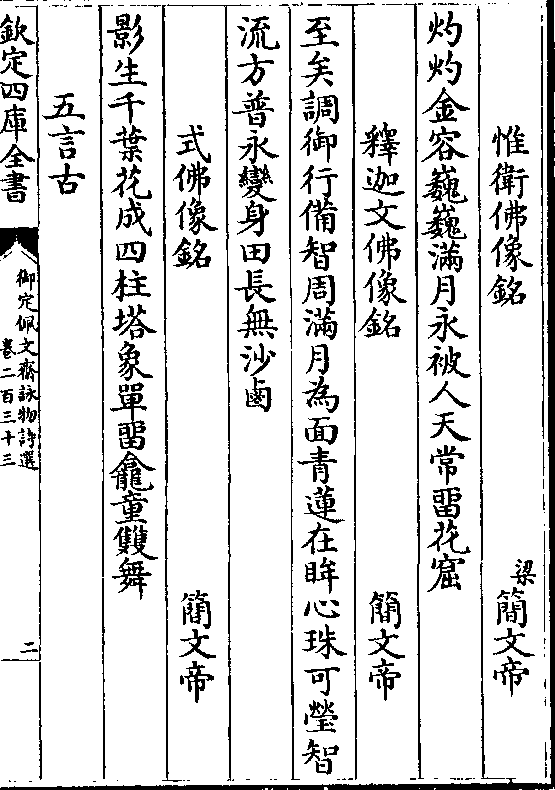 惟衛佛像銘　梁簡文帝
灼灼金容巍巍滿月永被人天常畱花窟
釋迦文佛像銘　簡文帝
至矣調御行備智周滿月為面青蓮在眸心珠可瑩智
流方普永變身田長無沙鹵
式佛像銘　簡文帝
影生千葉花成四柱塔象單畱龕童雙舞
五言古
欽定四庫全書
御定佩文齋詠物詩選
卷二百三十三
二